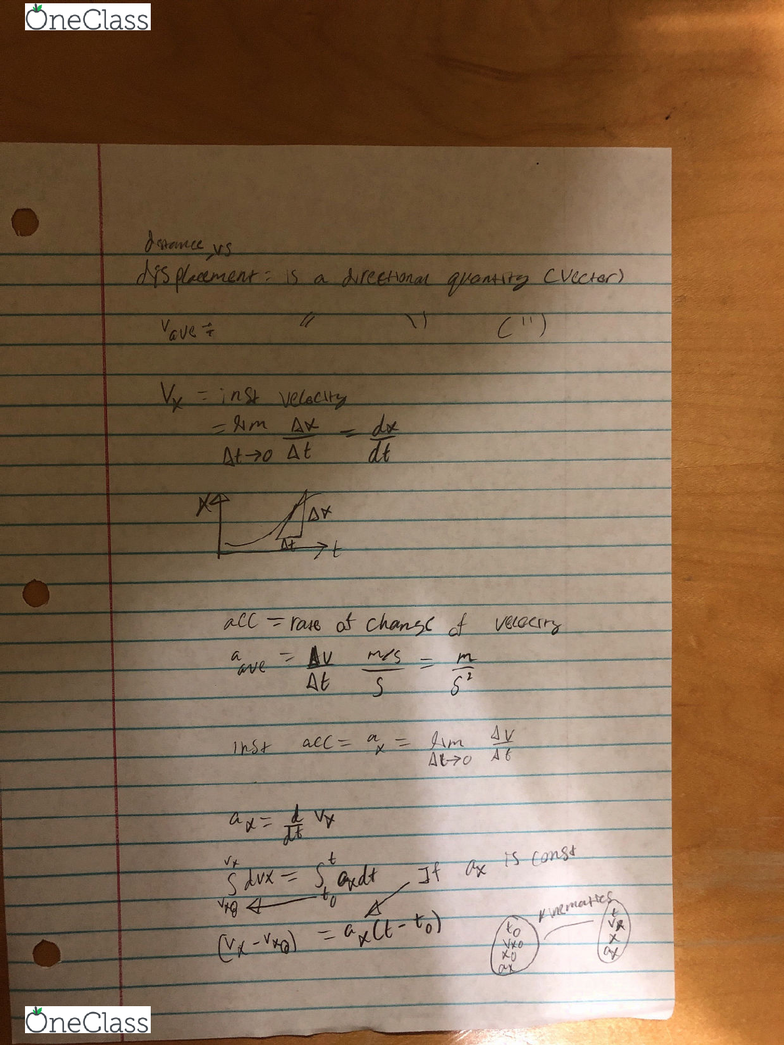 OneClass
distance vs
displacement = is a directional quantity (vector)
v ave = " " (")
Vx = inst velocity
= lim Δt→0 Δx/Δt = dx/dt
x Δx Δt t
acc = rate of change of velocity
a ave = Δv/Δt m/s/s = m/s²
inst acc = ax = lim Δt→0 Δv/Δt
ax = d/dt vx
∫vx0^vx dvx = ∫t0^t axdt If ax is const
(vx - vx0) = ax(t - t0)
kinematics
t0 t
vx0 vx
x0 x
ax ax
OneClass